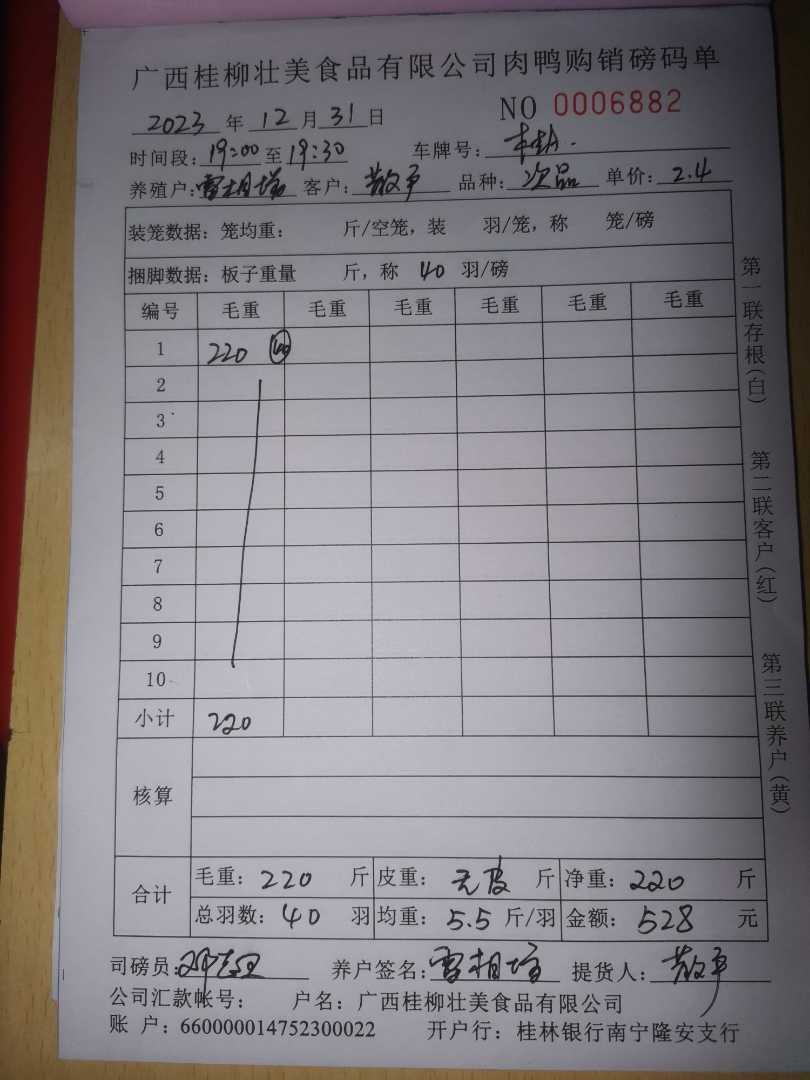 广西桂柳壮美食品有限公司肉鸭购销磅码单
NO 0006882
2023 年 12 月 31 日
时间段: 19:00 至 19:30 车牌号:
养殖户: 雷相 客户: 散户 品种: 次品 单价: 2.4
装笼数据: 笼均重: 斤/空笼, 装 羽/笼, 称 笼/磅
捆脚数据: 板子重量 斤, 称 40 羽/磅
编号 毛重 毛重 毛重 毛重 毛重 毛重
1 220 40
2
3
4
5
6
7
8
9
10
小计 220
核算
合计
毛重: 220 斤 皮重: 无皮 斤 净重: 220 斤
总羽数: 40 羽 均重: 5.5 斤/羽 金额: 528 元
司磅员: 养户签名: 雷相 提货人: 散户
公司汇款帐号: 户名: 广西桂柳壮美食品有限公司
账 户: 660000014752300022 开户行: 桂林银行南宁隆安支行
第一联存根(白)
第二联客户(红)
第三联养户(黄)